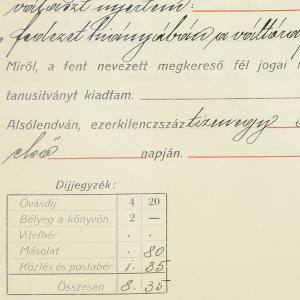 választ nyertem:
fedezet hiányában a váltóra
Miről, a fent nevezett megkereső fél jogai
tanusitványt kiadtam.
Alsólendván, ezerkilenczszáz tizenegy
első napján.
Díjjegyzék:
Óvásdíj 4 20
Bélyeg a könyvön 2 —
Vitelbér . .
Másolat . 80
Közlés és postabér 1. 35
Összesen 8. 35